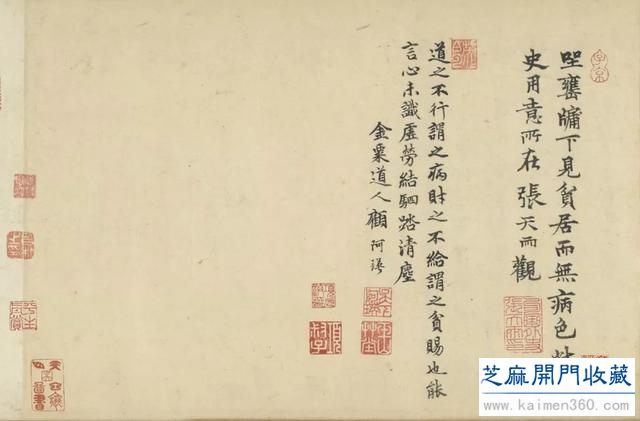 坐甕牖下見貧居而無病色此
史用意所在 張天雨觀
道之不行謂之病財之不給謂之貧賜也能
言心未識虛勞結駟踏清塵
金粟道人顧阿瑛
芝麻開門收藏
www.kaimen360.com